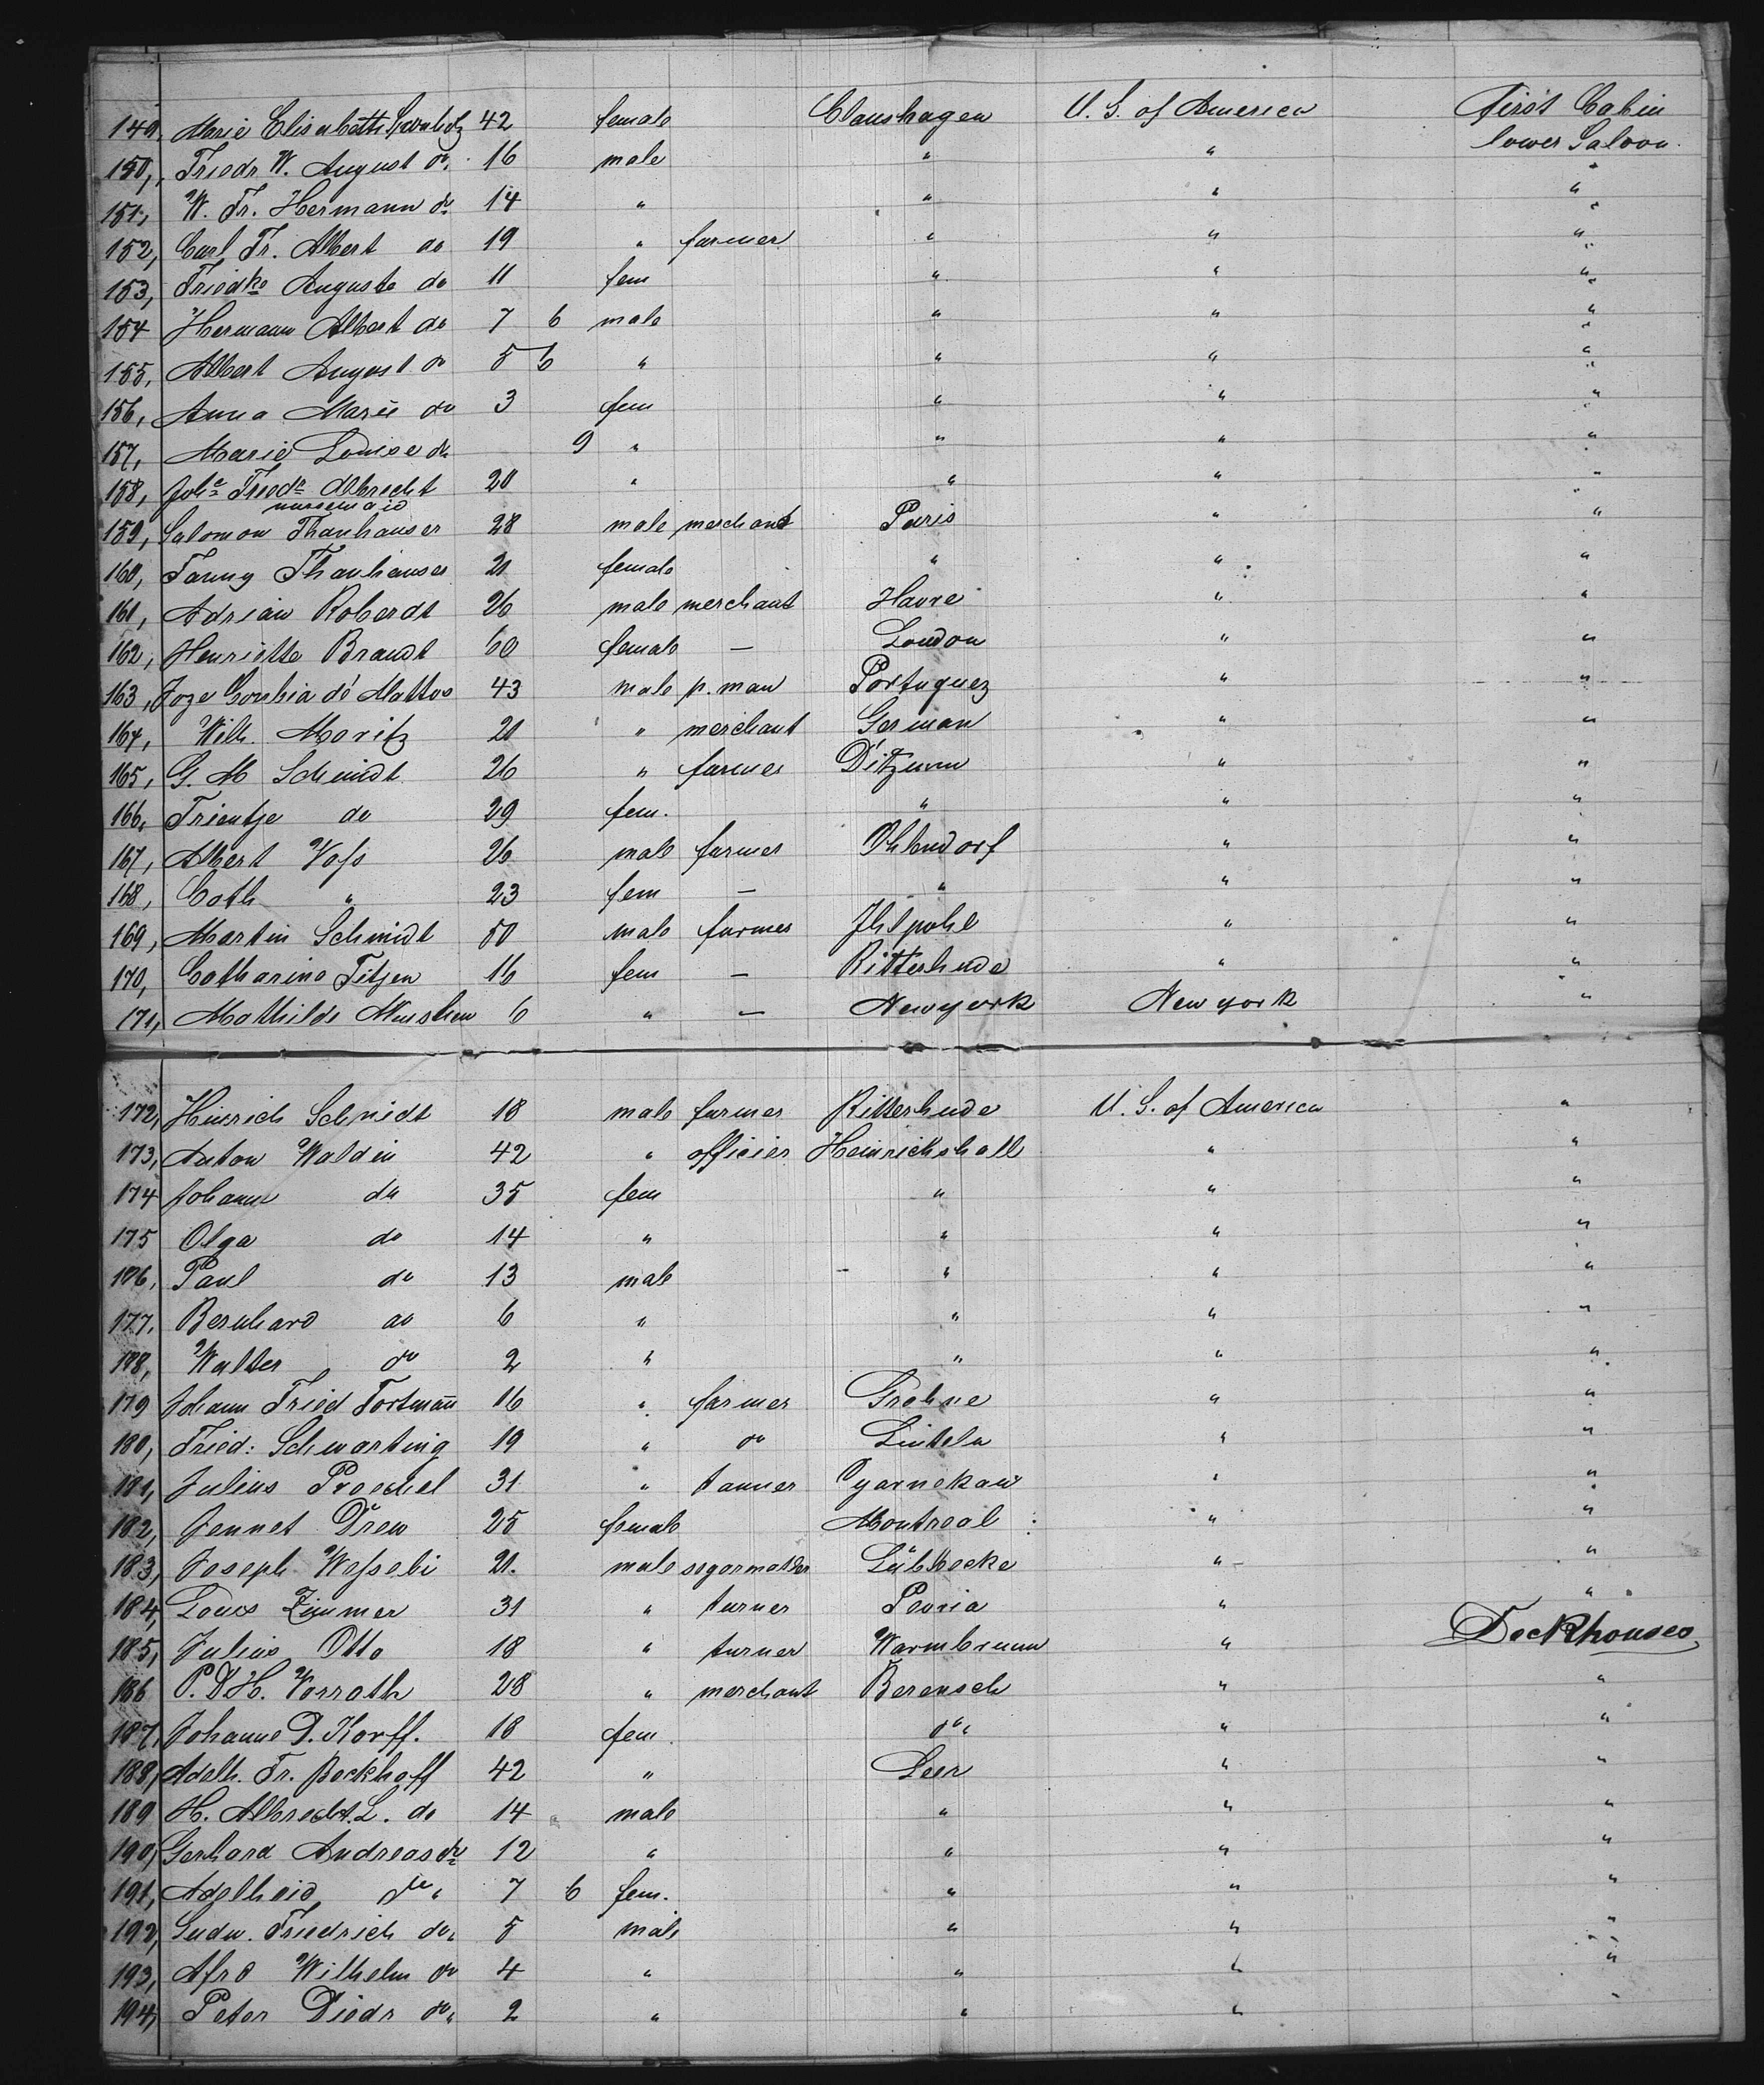 149, Marie Elisabeth 42 female Claushagen U. S. of America First Cabin
lower Saloon.
150, Friedr W. August do. 16 male " " "
151, W. Fr. Hermann do 14 " " " "
152, Carl Fr. Albert do 19 " farmer " " "
153, Friedke Auguste do 11 fem " " "
154 Hermann Albert do 7 6 male " " "
155, Albert August do 5 6 " " " "
156, Anna Marie do 3 fem " " "
157, Marie Louise do 9 " " " "
158, Johe Friedr Albrecht 20 " " " "
nursemaid
159, Salomon Thanhauser 28 male merchant Paris " "
160, Fanny Thanhauser 21 female " " "
161, Adrian Roberdt 26 male merchant Havre " "
162, Henriette Brandt 60 female — London " "
163, Joze de Mattos 43 male p. man Portuguez " "
164, Wilh. Moritz 21 " merchant German " "
165, G. M Schmidt 26 " farmer Ditzum " "
166, Trientje do 29 fem. " " "
167, Albert Voss 26 male farmer Ohlendorf " "
168, Cath " 23 fem — " " "
169, Martin Schmidt 50 male farmer Ihlpohl " "
170, Catharine Titjen 16 fem — Ritterhude " "
171, Mathilde 6 " — Newyork New york "
172, Hinrich Schmidt 18 male farmer Ritterhude U. S. of America "
173, Anton Waldin 42 " officier Heinrichshall " "
174 Johanne do 35 fem " " "
175 Olga do 14 " " " "
176, Paul do 13 male " " "
177, Bernhard do 6 " " " "
178, Walter do 2 " " " "
179 Johann Fried Fortmann 16 " farmer Grohne " "
180, Fried: Schwarting 19 " do Linteln " "
181, Julius Proechel 31 " tanner " "
182, Jennet Drew 25 female Montreal " "
183, Joseph 21. male segarmaker Lübbecke " "
184, Louis Zimmer 31 " turner Peoria " "
185, Julius Otto 18 " turner Warmbrunn " Deckhouses
186 P. D H. Vorrath 28 " merchant Berensch " "
187, Johanne D. Korff. 18 fem. do " "
188, Adelh. Fr. Bockhoff 42 " Leer " "
189 H. Albrecht L. do 14 male " " "
190, Gerhard Andreas do 12 " " " "
191, Adelheid do 7 6 fem. " " "
192, Ludw. Friedrich do. 5 male " " "
193, Wilhelm do 4 " " " "
194, Peter Diedr do. 2 " " " "